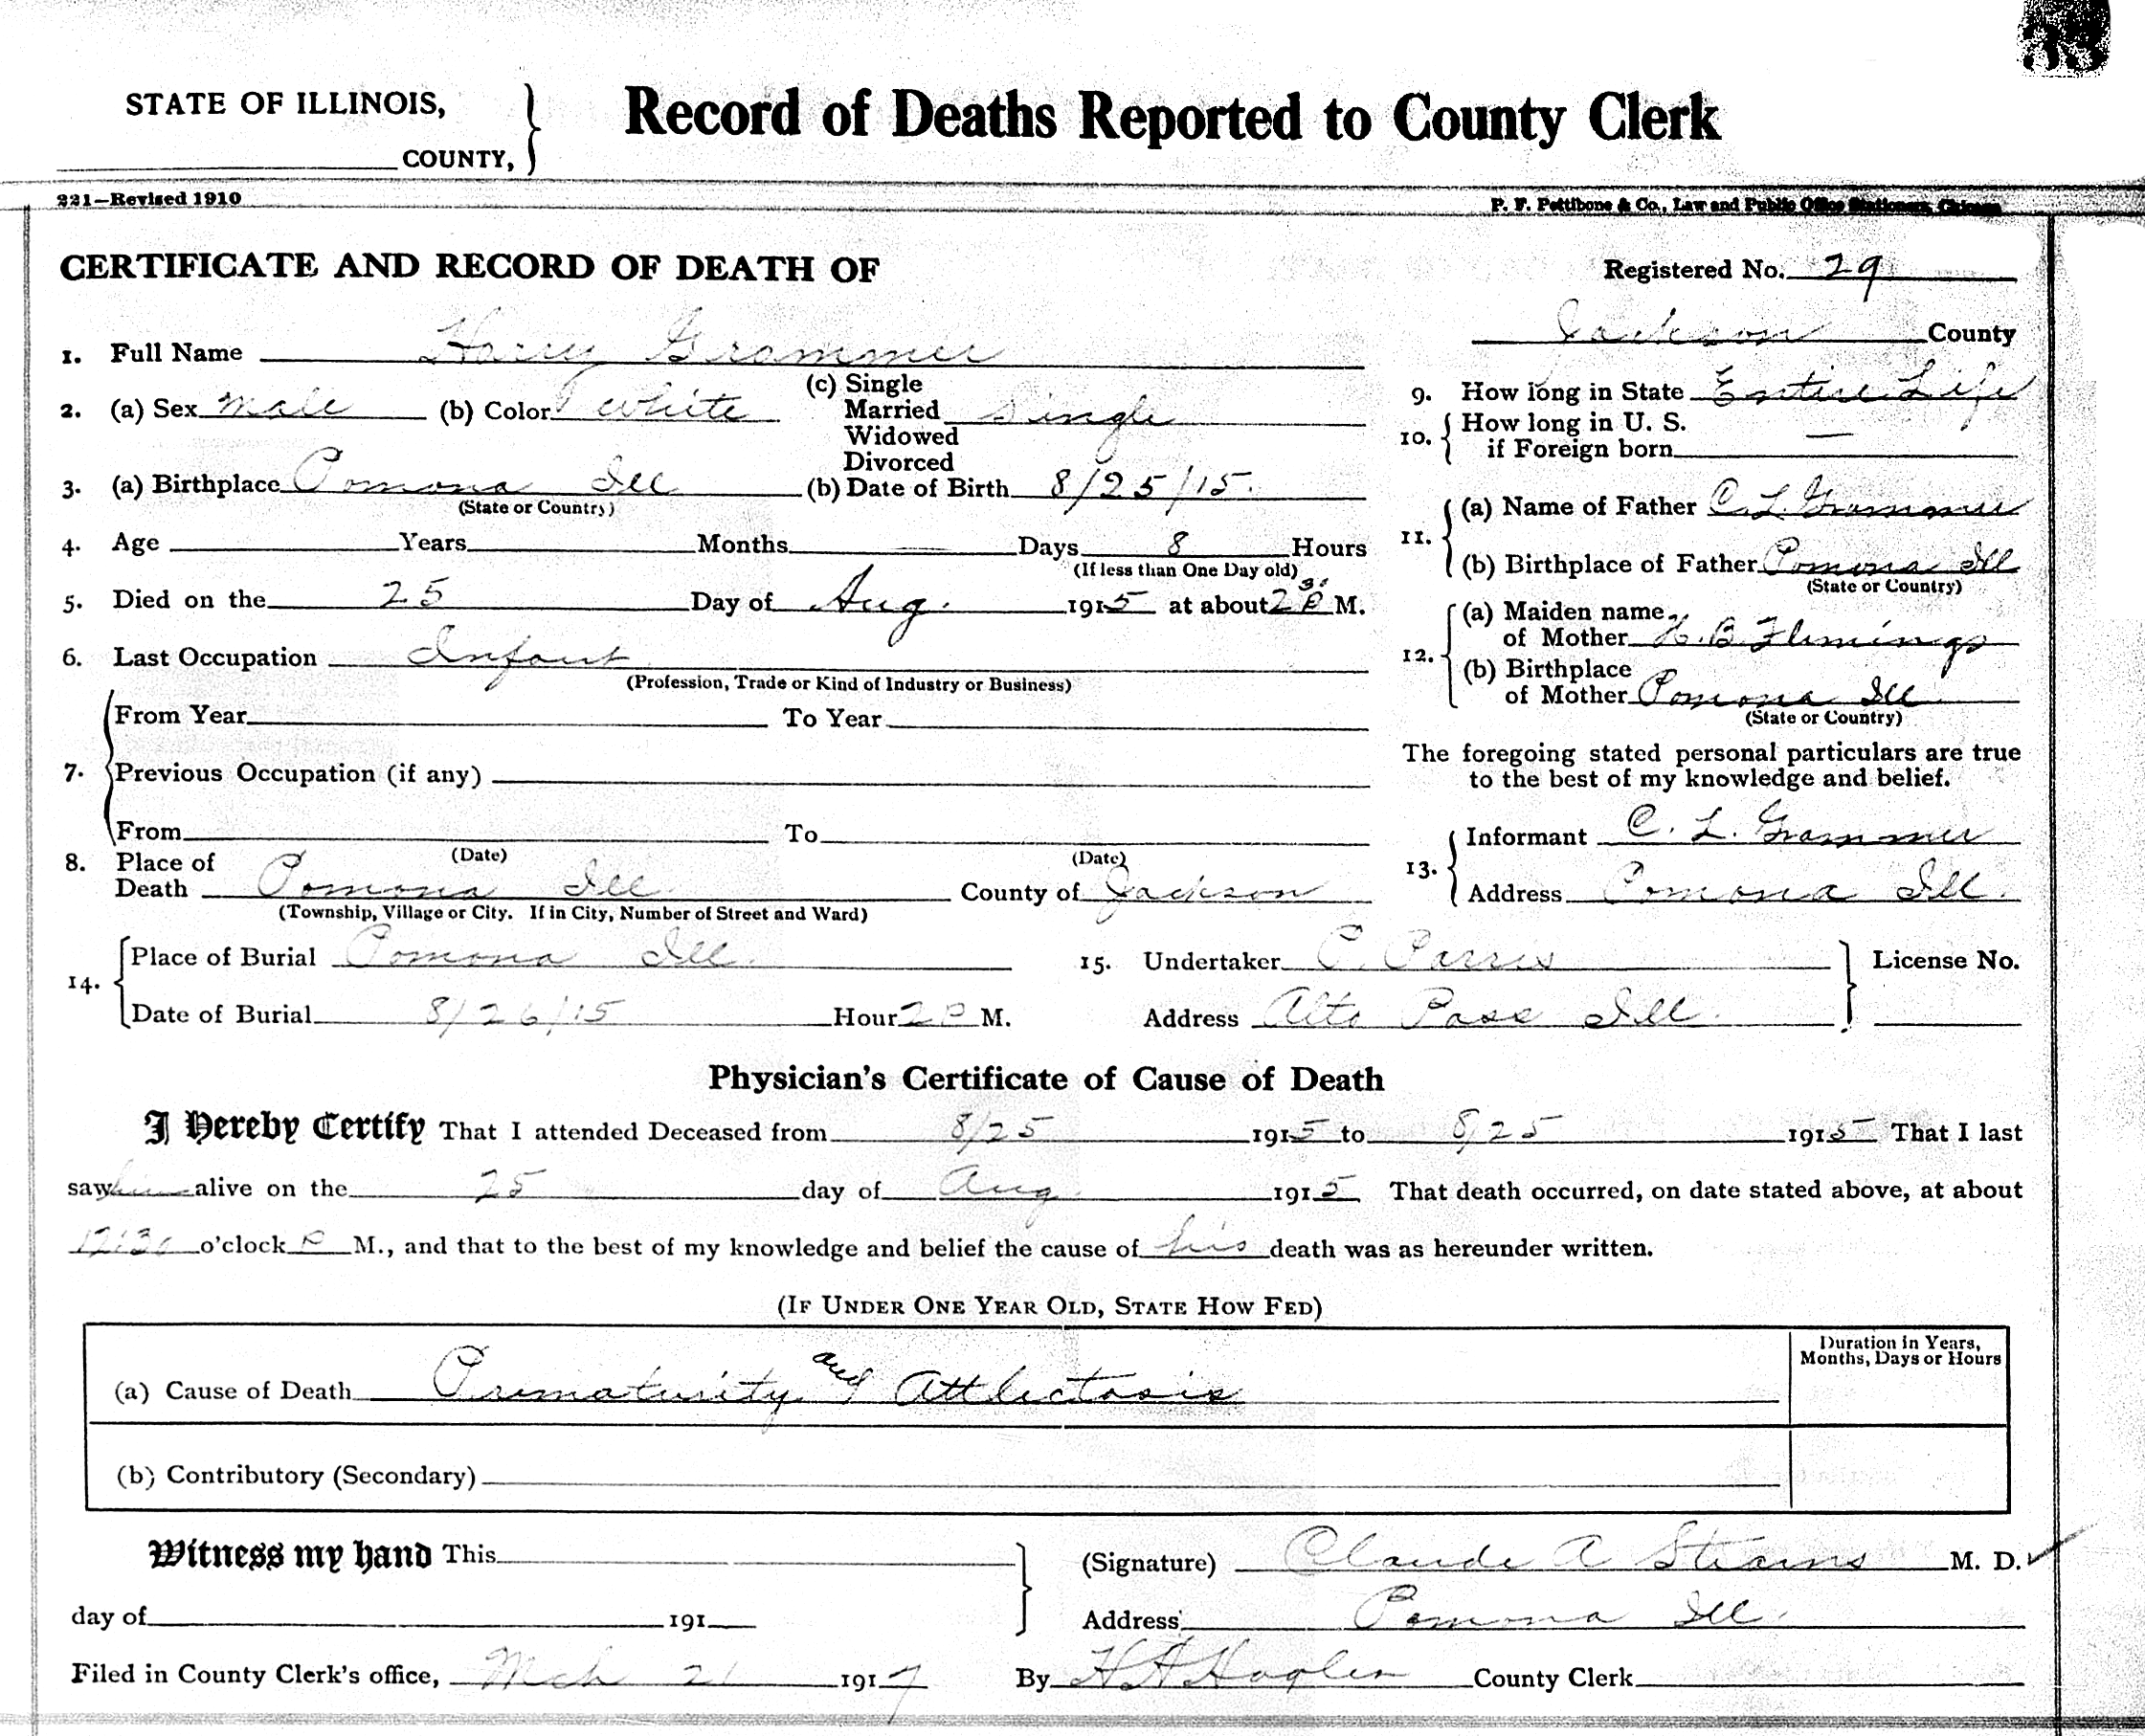 33
STATE OF ILLINOIS,
COUNTY,
Record of Deaths Reported to County Clerk
221—Revised 1910
P. F. Pettibone & Co., Law and Public Office Stationers, Chicago
CERTIFICATE AND RECORD OF DEATH OF
Registered No. 29
Jackson County
1. Full Name Harry Grammer
2. (a) Sex Male (b) Color White (c) Single Married Widowed Divorced Single
3. (a) Birthplace Pomona Ill (State or Country) (b) Date of Birth 8/25/15.
4. Age Years Months — Days 8 Hours
(If less than One Day old)
5. Died on the 25 Day of Aug. 1915 at about 2 30 P M.
6. Last Occupation Infant
(Profession, Trade or Kind of Industry or Business)
7. From Year To Year
Previous Occupation (if any)
From To
(Date) (Date)
8. Place of Death Pomona Ill. County of Jackson
(Township, Village or City. If in City, Number of Street and Ward)
9. How long in State Entire Life
10. How long in U. S. if Foreign born —
11. (a) Name of Father C. L. Grammer
(b) Birthplace of Father Pomona Ill
(State or Country)
12. (a) Maiden name of Mother H. B. Flemings
(b) Birthplace of Mother Pomona Ill
(State or Country)
The foregoing stated personal particulars are true
to the best of my knowledge and belief.
13. Informant C. L. Grammer
Address Pomona Ill.
14. Place of Burial Pomona Ill.
Date of Burial 8/26/15 Hour 2 P M.
15. Undertaker C. Parris License No.
Address Alto Pass Ill.
Physician's Certificate of Cause of Death
I Hereby Certify That I attended Deceased from 8/25 1915 to 8/25 1915 That I last
saw him alive on the 25 day of Aug. 1915 That death occurred, on date stated above, at about
12:30 o'clock P M., and that to the best of my knowledge and belief the cause of his death was as hereunder written.
(IF UNDER ONE YEAR OLD, STATE HOW FED)
Duration in Years,
Months, Days or Hours
(a) Cause of Death Prematurity and Attlectosis
(b) Contributory (Secondary)
Witness my hand This
day of 191
(Signature) Claude A Stearns M. D.
Address Pomona Ill.
Filed in County Clerk's office, Mch 21 1917 By H A Hagler County Clerk